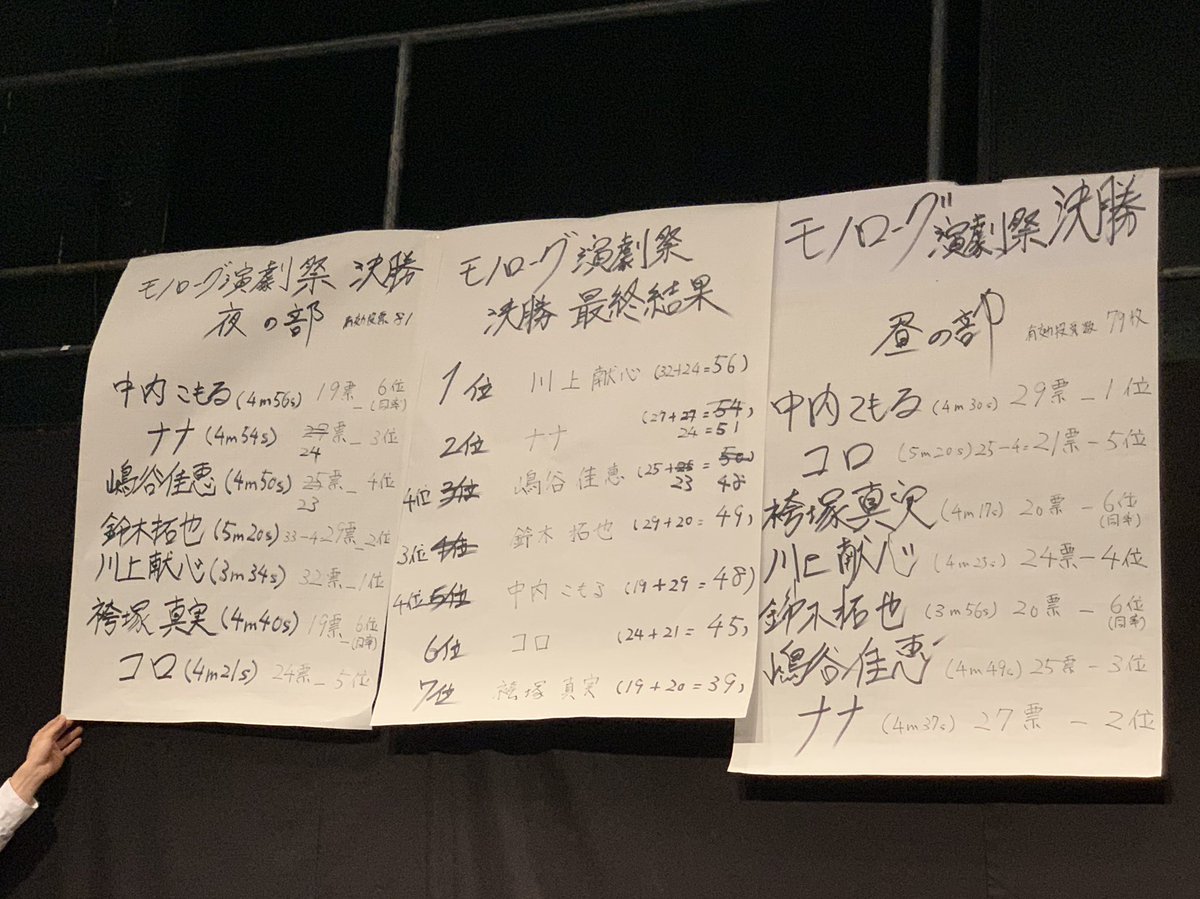 モノローグ演劇祭 決勝
夜の部 有効投票 81
中内こもる (4m56s) 19票 - 6位 (同率)
ナナ (4m54s) 27票 - 3位
24
嶋谷佳恵 (4m50s) 25票 - 4位
23
鈴木拓也 (5m20s) 33-4 29票 - 2位
川上献心 (3m34s) 32票 - 1位
袴塚真実 (4m40s) 19票 - 6位 (同率)
コロ (4m21s) 24票 - 5位
モノローグ演劇祭
決勝 最終結果
1位 川上献心 (32+24=56)
(27+27=54)
2位 ナナ 24 =51
4位 3位 嶋谷佳恵 (25+25=50)
23 48
3位 4位 鈴木拓也 (29+20=49)
4位 5位 中内こもる (19+29=48)
6位 コロ (24+21=45)
7位 袴塚真実 (19+20=39)
モノローグ演劇祭 決勝
昼の部 有効投票数 79枚
中内こもる (4m30s) 29票 - 1位
コロ (5m20s) 25-4=21票 - 5位
袴塚真実 (4m17s) 20票 - 6位 (同率)
川上献心 (4m23s) 24票 - 4位
鈴木拓也 (3m56s) 20票 - 6位 (同率)
嶋谷佳恵 (4m49s) 25票 - 3位
ナナ (4m37s) 27票 - 2位